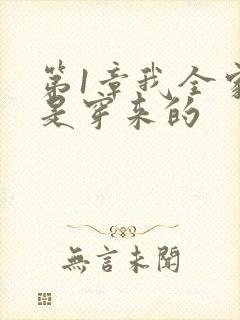 第1章我全家
是穿来的
無言未聞